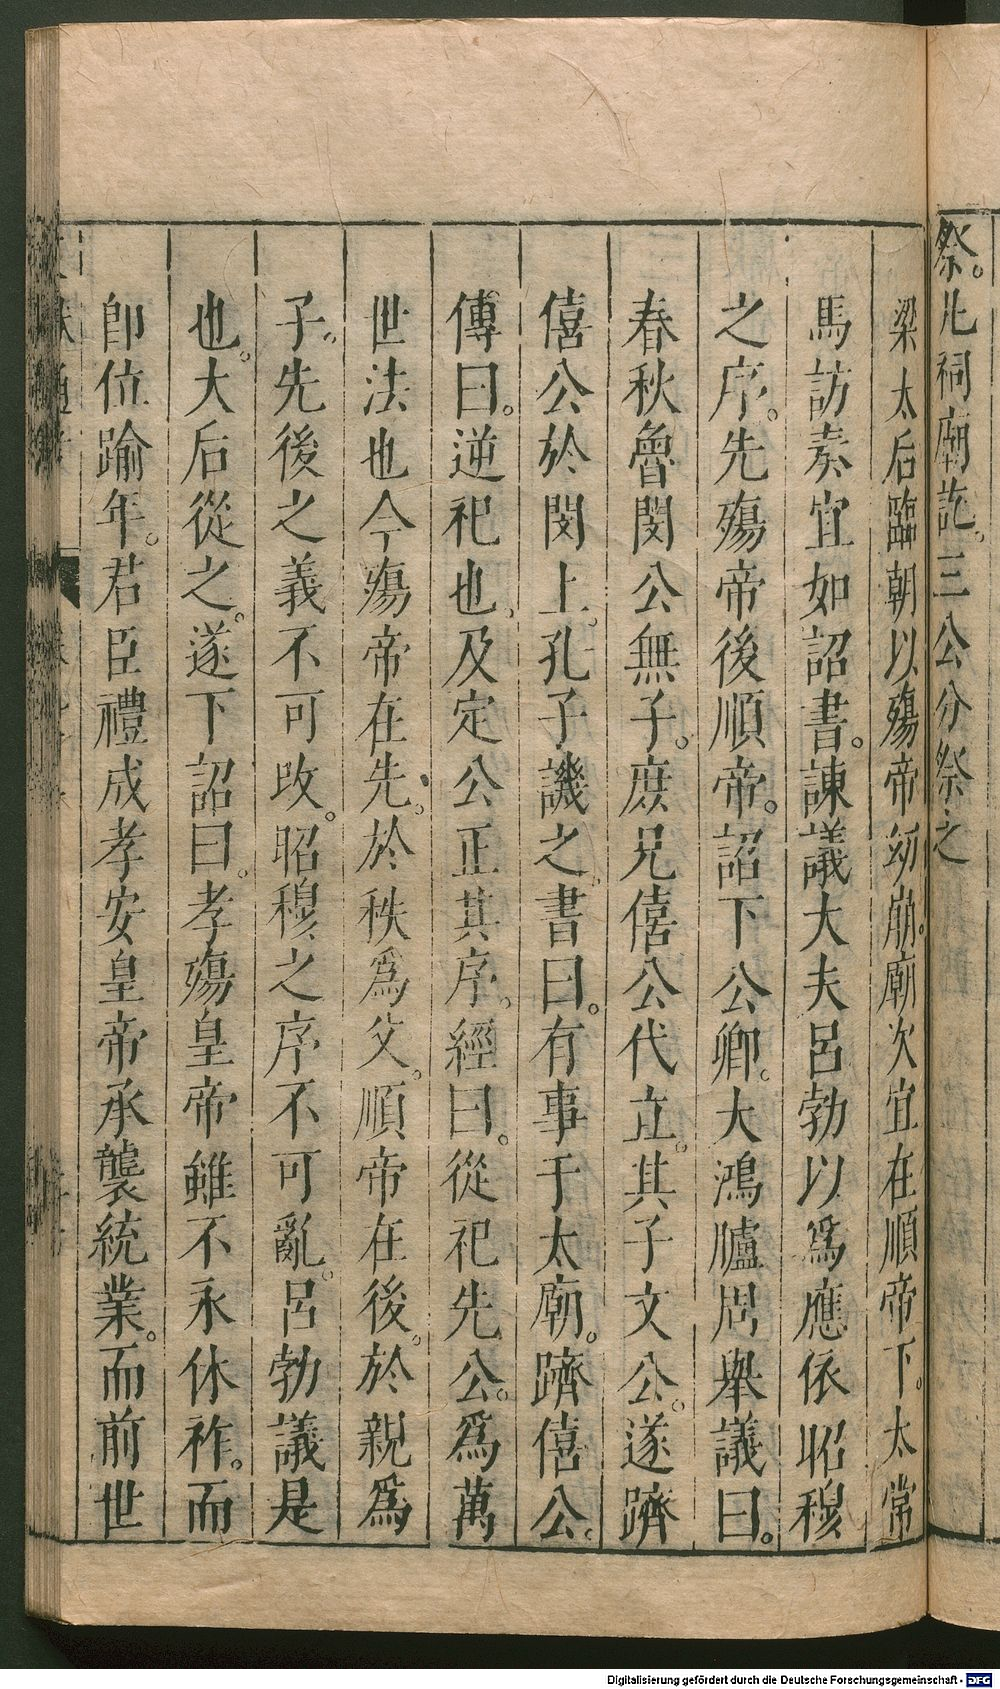 祭。凡祠廟訖。三公分祭之
梁太后臨朝以殤帝幼崩。廟次宜在順帝下。太常
馬訪奏宜如詔書。諫議大夫呂勃以爲應依昭穆
之序。先殤帝後順帝。詔下公卿。大鴻臚周舉議曰。
春秋魯閔公無子。庶兄僖公代立。其子文公。遂躋
僖公於閔上。孔子譏之。書曰。有事于太廟。躋僖公。
傳曰。逆祀也。及定公正其序。經曰。從祀先公。爲萬
世法也今殤帝在先。於秩爲父。順帝在後。於親爲
子。先後之義不可改。昭穆之序不可亂。呂勃議是
也。大后從之。遂下詔曰。孝殤皇帝雖不永休祚。而
卽位踰年。君臣禮成孝安皇帝承襲統業。而前世